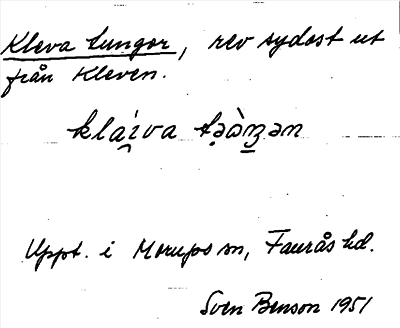 Kleva tungor, rev sydost ut
från Kleven.
Uppt. i Morups sn, Faurås hd.
Sven Benson 1951